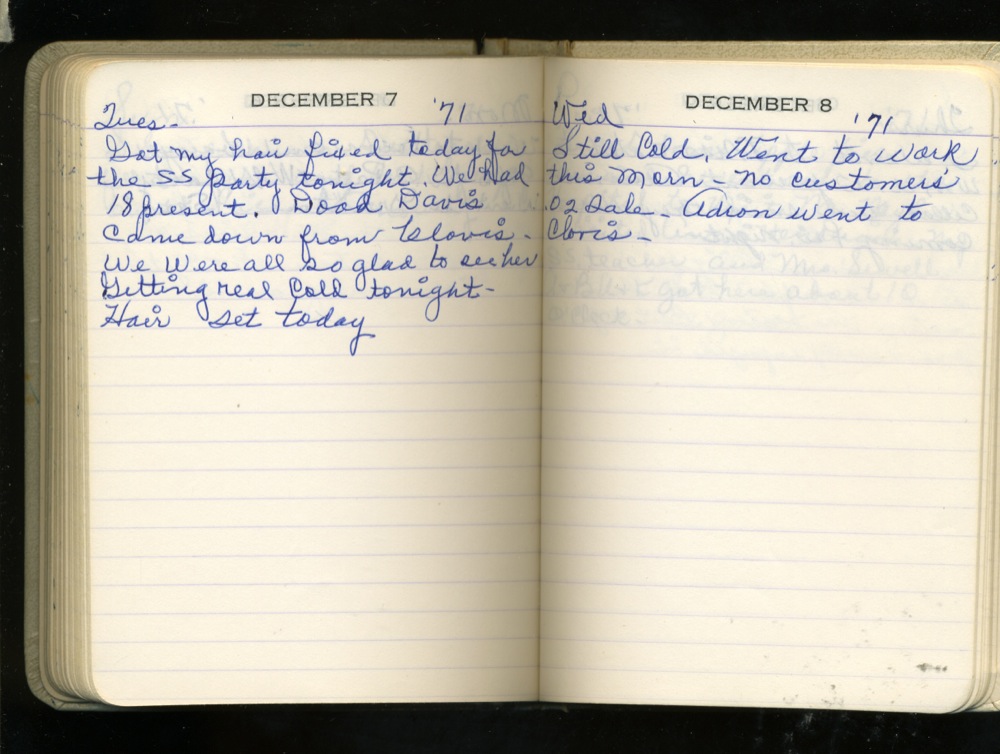 DECEMBER 7 '71
Tues-
Got my hair fixed today for
the SS party tonight. We had
18 present. Dood Davis
came down from Clovis-
We were all so glad to see her
Getting real Cold tonight-
Hair set today
DECEMBER 8
Wed '71
Still Cold. Went to work
this morn - no customers
02 sale - Adron went to
Clovis-